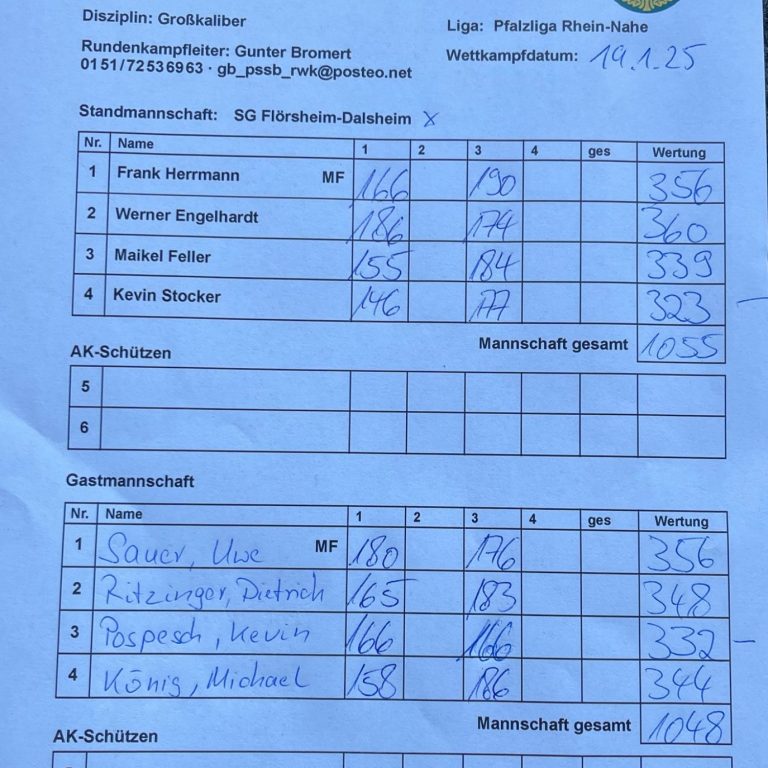 Disziplin: Großkaliber
Liga: Pfalzliga Rhein-Nahe
Rundenkampfleiter: Gunter Bromert
Wettkampfdatum: 19.1.25
0151/72536963 · gb_pssb_rwk@posteo.net
Standmannschaft: SG Flörsheim-Dalsheim X
Nr. Name 1 2 3 4 ges Wertung
1 Frank Herrmann MF 166 190 356
2 Werner Engelhardt 186 174 360
3 Maikel Feller 155 184 339
4 Kevin Stocker 146 177 323 –
Mannschaft gesamt 1055
AK-Schützen
5
6
Gastmannschaft
Nr. Name 1 2 3 4 ges Wertung
1 Sauer, Uwe MF 180 176 356
2 Ritzinger, Dietrich 165 183 348
3 Pospesch, Kevin 166 166 332 –
4 König, Michael 158 186 344
Mannschaft gesamt 1048
AK-Schützen